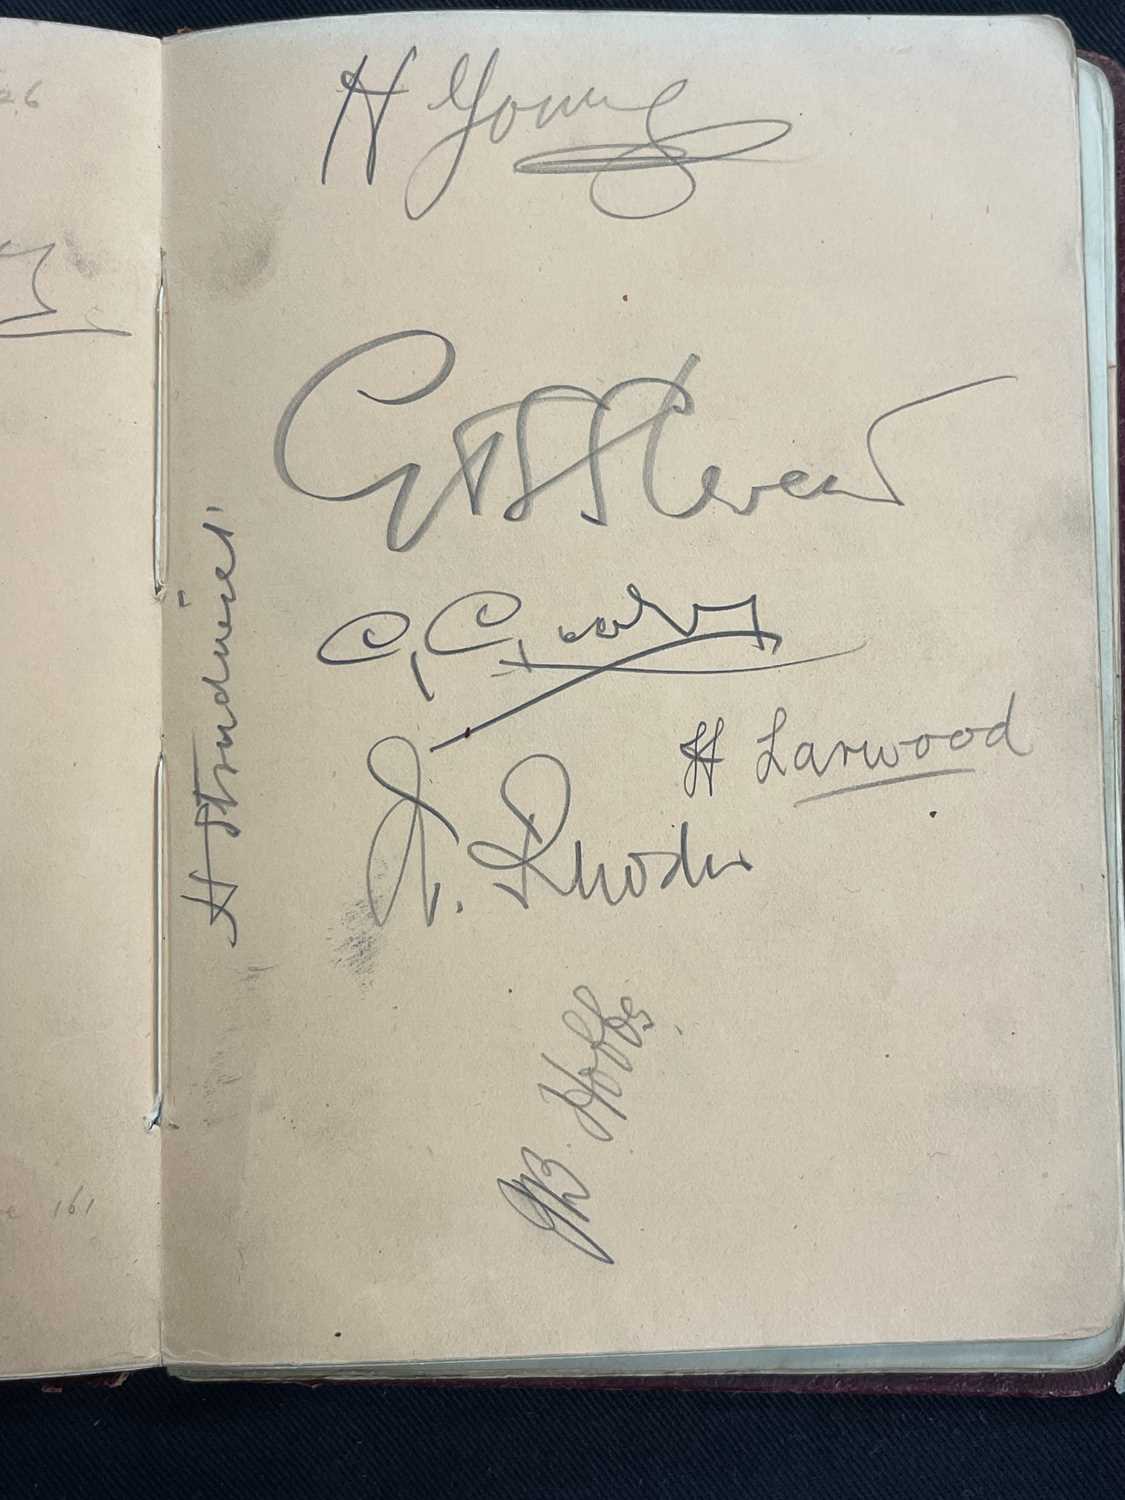 26
H Young
G T S Stevens
H Strudwick
C. Geary
H Larwood
W. Rhodes
J B Hobbs
161